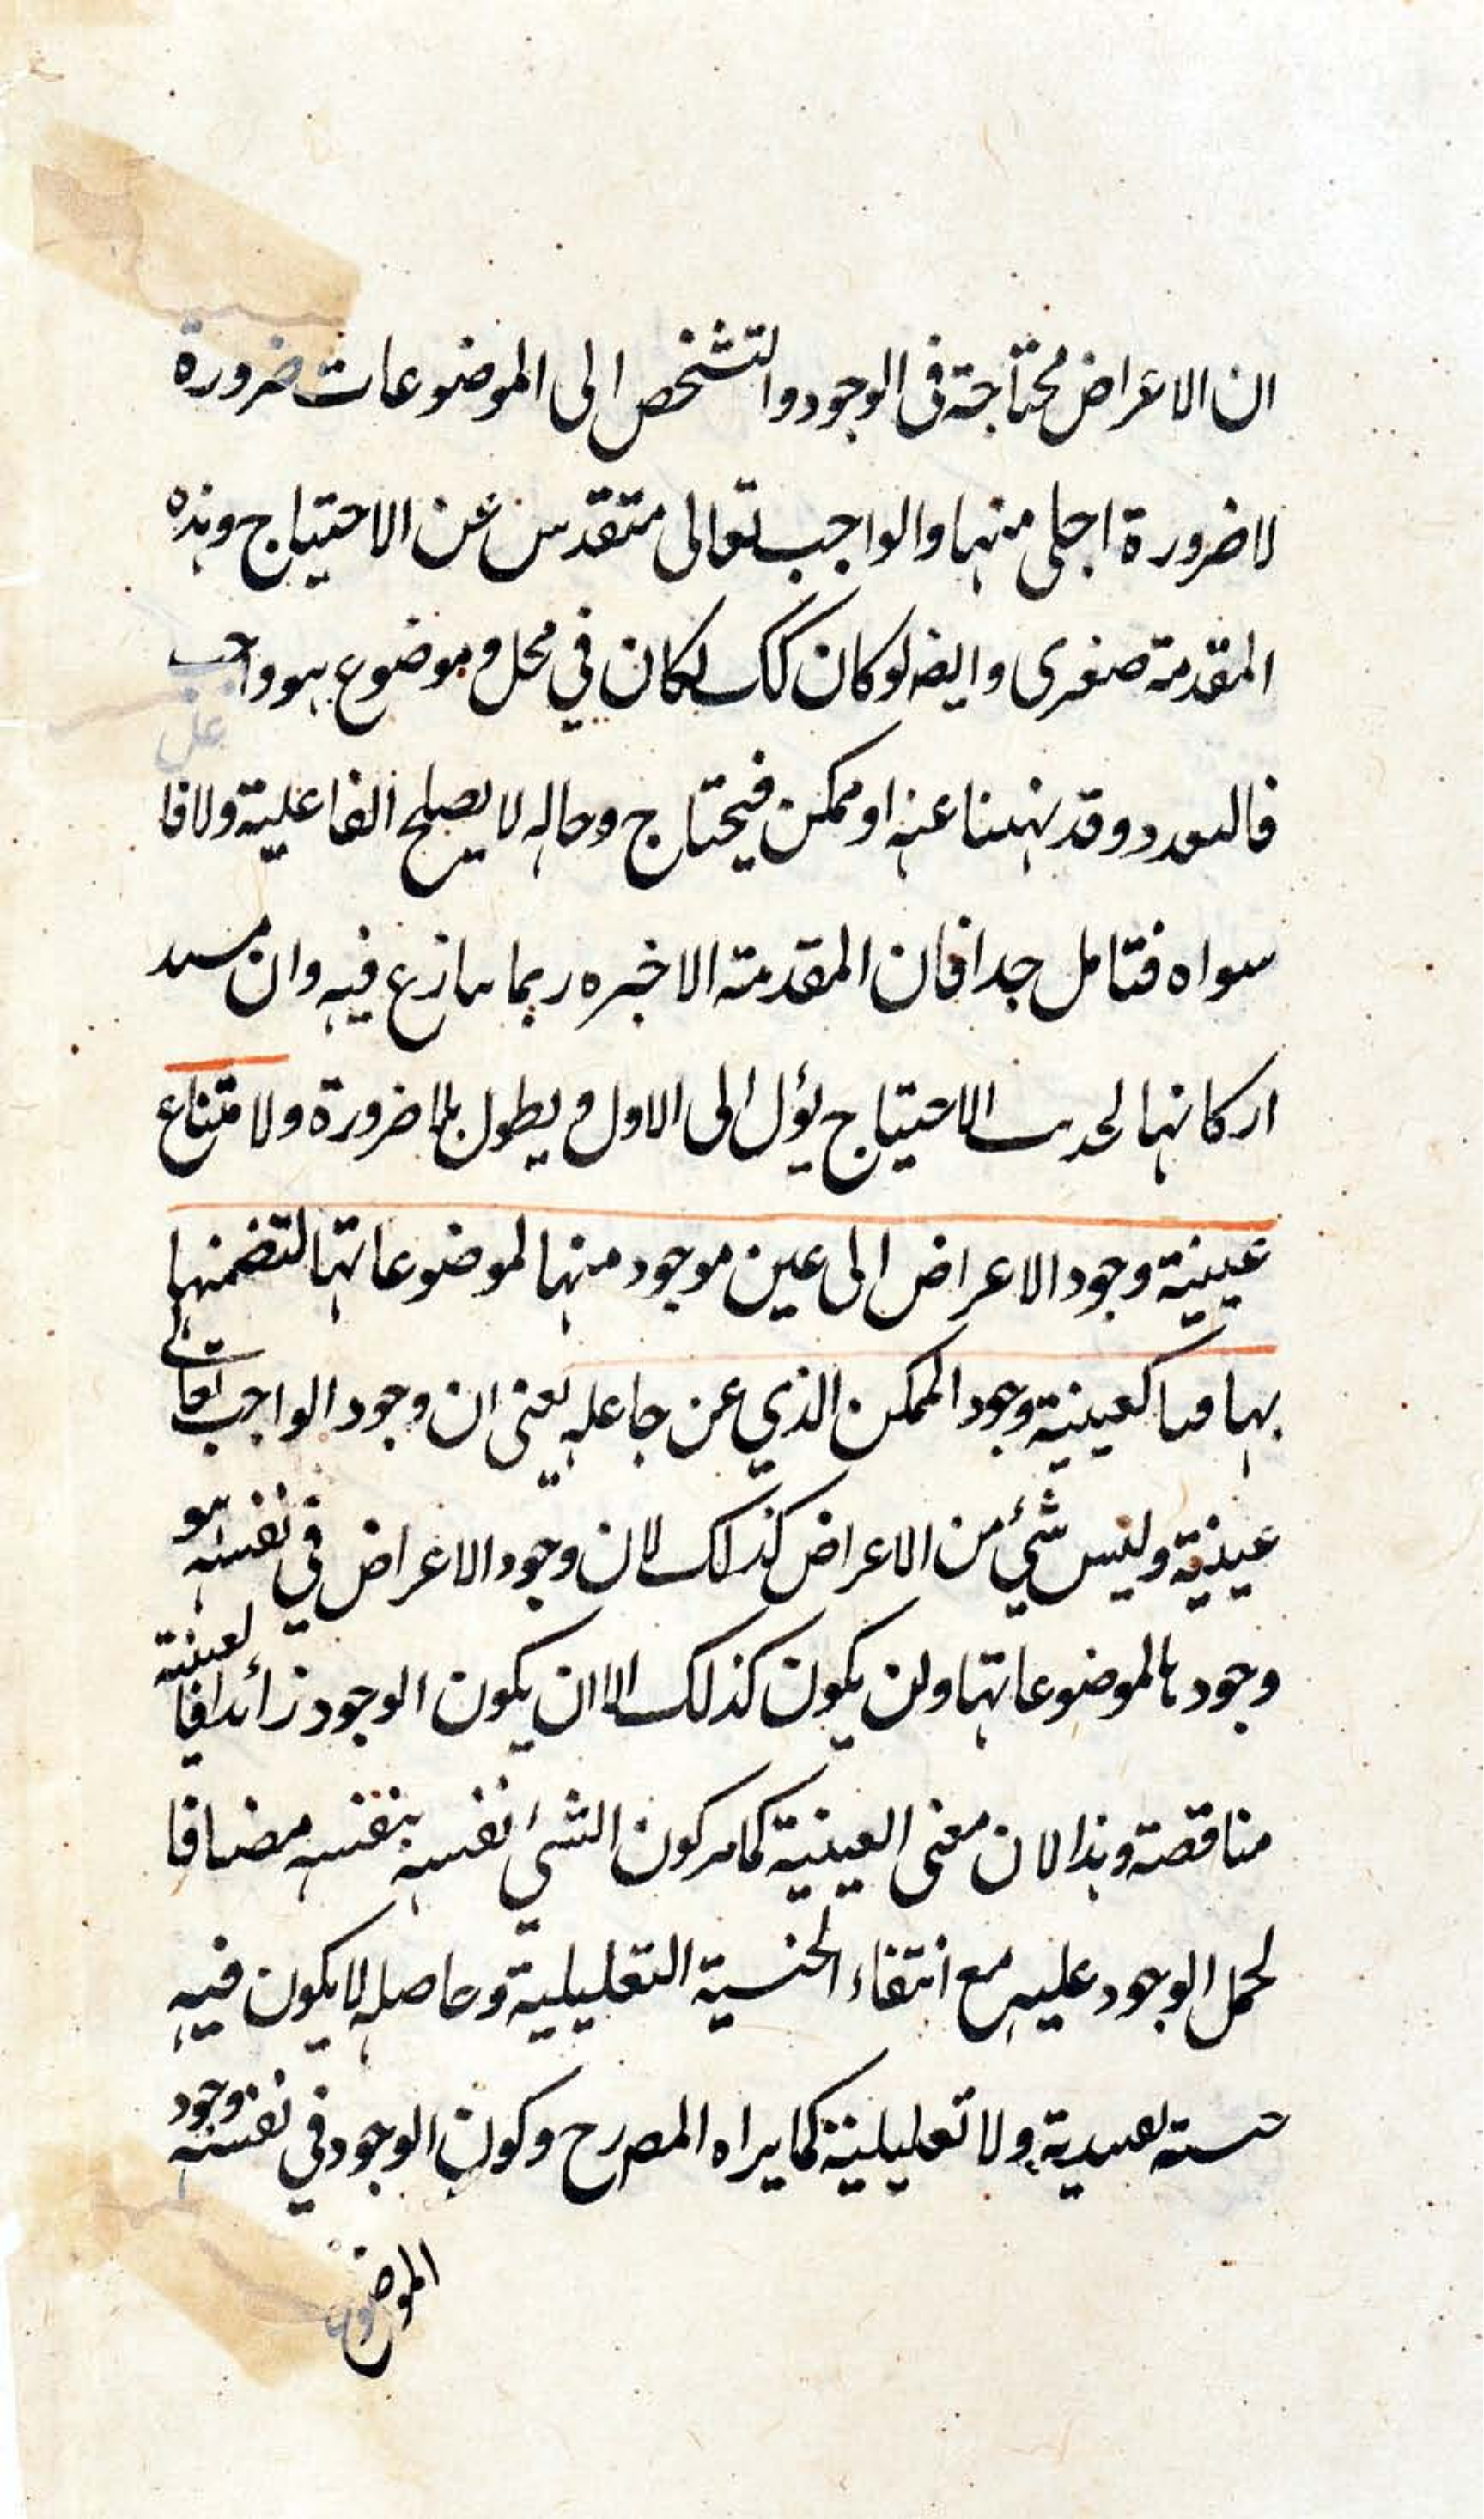 ان الاعراض محتاجة فى الوجود والتشخص الى الموضوعات ضرورة
لا ضرورة اجلى منها والواجب تعالى متقدس عن الاحتياج وهذه
المقدمة صغرى وايضه لو كان كك لكان في محل و موضوع هو واجب
وقد عنه او ممكن فيحتاج وحاله لا يصلح الفاعلية ولا فا
عل
سواه فتامل جدا فان المقدمة الاخيره ربما ينازع فيه وان
اركانها الاحتياج يؤل الى الاول و يطول بلا ضرورة ولامتناع
عينية وجود الاعراض الى عين موجود منها لموضوعاتها لتضمنها
بها كعينية وجود الممكن الذي عن جاعله يعنى ان وجود الواجب تعالے
عينية وليس شئ من الاعراض كذلك لان وجود الاعراض في نفسه هو
وجودها لموضوعاتها ولن يكون كذلك الا ان يكون الوجود زائدا فالعينية
مناقصة وهذا لان معنى العينية كما مر كون الشئ نفسه بنفسه مضافا
لحمل الوجود عليه مع انتفاء الحيسية التعليلية وحاصله لا يكون فيه
ولا تعليلية كما يراه المصرح وكون الوجود في نفسه وجود
الموضوع